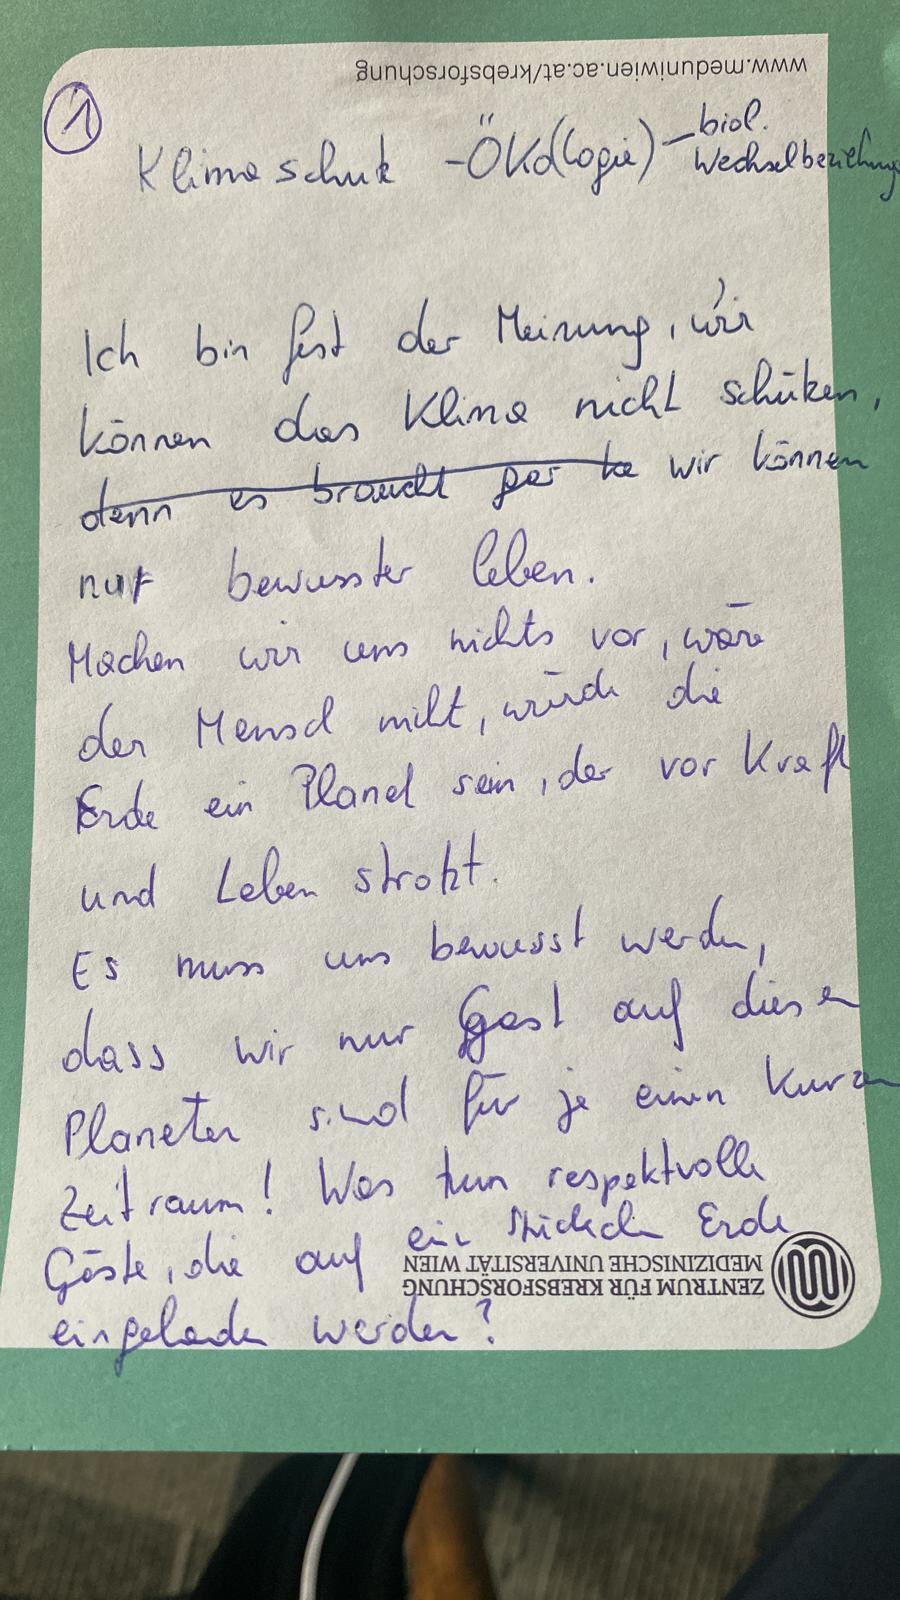 www.meduniwien.ac.at/krebsforschung
1
Klimaschutz - ÖKO(logie) - biol.
Wechselbeziehung
Ich bin fest der Meinung, wir
können das Klima nicht schützen,
denn es braucht gar ke wir können
nur bewusster leben.
Machen wir uns nichts vor, wäre
der Mensch nicht, würde die
Erde ein Planet sein, der vor Kraft
und Leben strotzt.
Es muss uns bewusst werden,
dass wir nur Gast auf diesen
Planeten sind für je einen kurzen
Zeitraum! Was tun respektvolle
Gäste, die auf ein Stückchen Erde
eingeladen werden?
ZENTRUM FÜR KREBSFORSCHUNG
MEDIZINISCHE UNIVERSITÄT WIEN